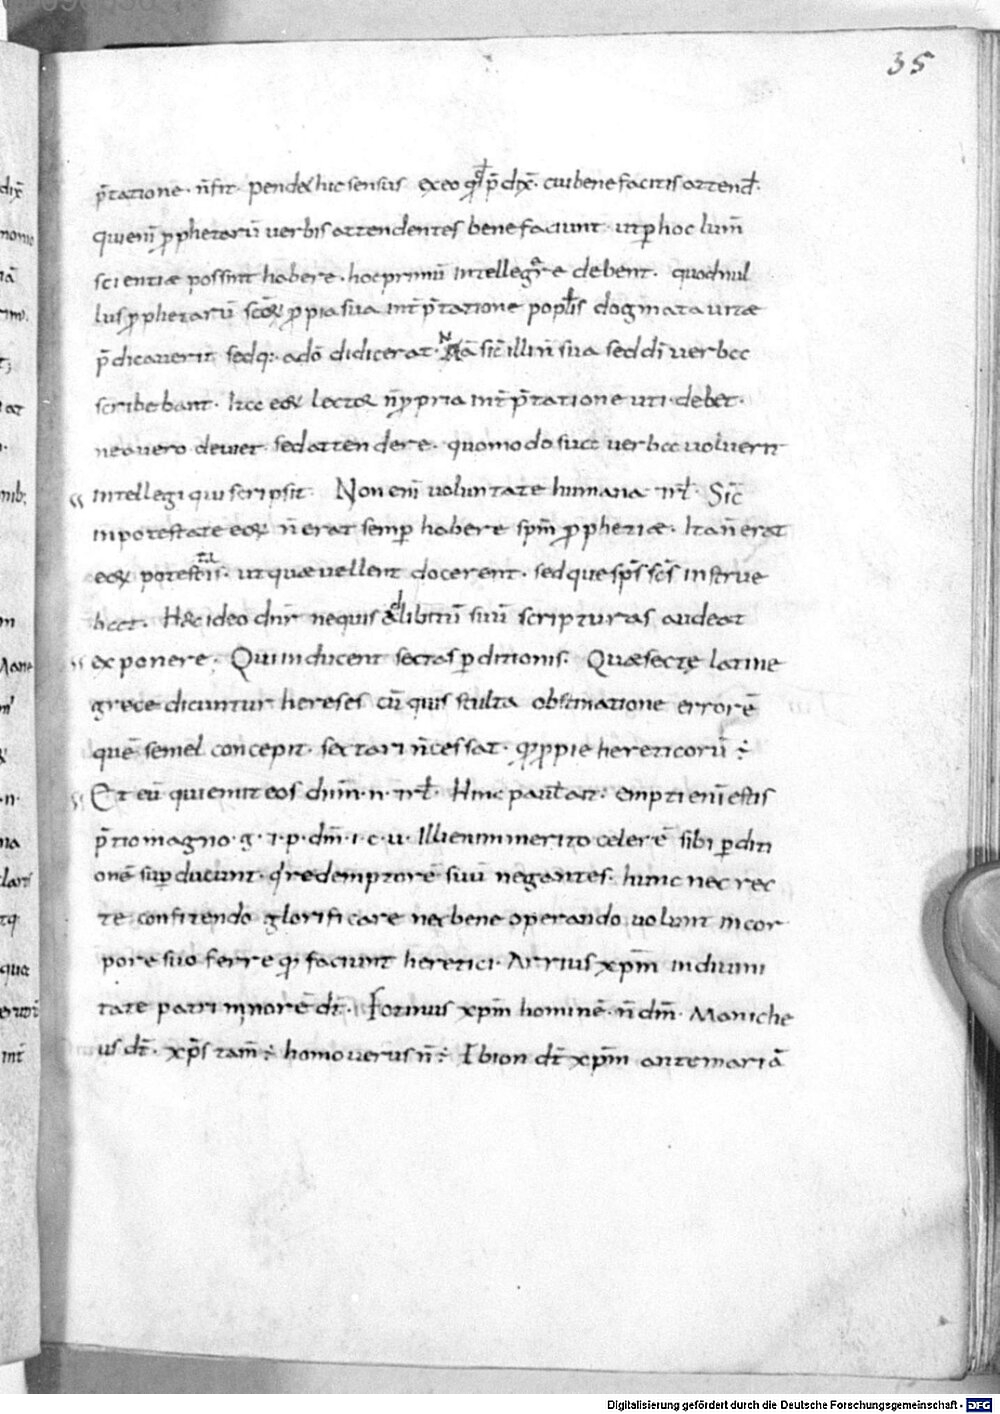 35
p̄tatione· n̄ fit· pendet hic sensus ex eo qđ p̄dix̄· cui bene facitis attenđ·
qui enī ꝓphetarū uerbis attendentes bene faciunt· ut ꝑ hoc lum̄
scientiæ possint habere· hoc primū intellegere debent· quod nul
lus ꝓphetarū sc̄oꝝ ꝓpria sua int̄p̄tatione poplis dogmata uitæ
p̄dicauerit sed q: a dō didicerat· Nā sic̄ illi n̄ sua sed dī uerba
scribebant· ita eoꝝ lector n̄ ꝓpria int̄p̄tatione uti debet·
ne a uero deuiet· sed attendere· quomodo sua uerba uoluerit
intellegi qui scripsit· Non enī uoluntate humana· Sic̄
in potestate eoꝝ n̄ erat semꝑ habere sp̄m ꝓphetiæ· Ita n̄ erat
eoꝝ potestatis· ut quæ uellent docerent· sed que sp̄s sc̄s instrue
bat· Hæc ideo dn̄r ne quis ad libitū suū scripturas audeat
exponere· Qui inducent sectas ꝑditionis· Quæ sectę latine
grece dicuntur hereses cū quis stulta obstinatione errorē
quē semel concepit· sectari n̄ cessat· ꝓprie hereticorū ÷
Et eū qui emit eos dn̄m· n· Hinc paul ait· empti enī estis
p̄tio magno· g· &· p· dm̄· i· c· u· Illi enim merito celerē sibi ꝑditi
onē suꝑducunt· q redemptorē suū negantes· hunc nec rec
te confitendo glorificare nec bene operando uolunt in cor
pore suo ferre faciunt heretici· Arrius xp̄m in diuini
tate patri minorē dt̄· Fotinus xp̄m hominē· n̄ dm̄· Maniche
us dt̄· xp̄s tam̄ ÷ homo uerus n̄ ÷ Ebion dt̄ xp̄m ante mariā
Digitalisierung gefördert durch die Deutsche Forschungsgemeinschaft - DFG